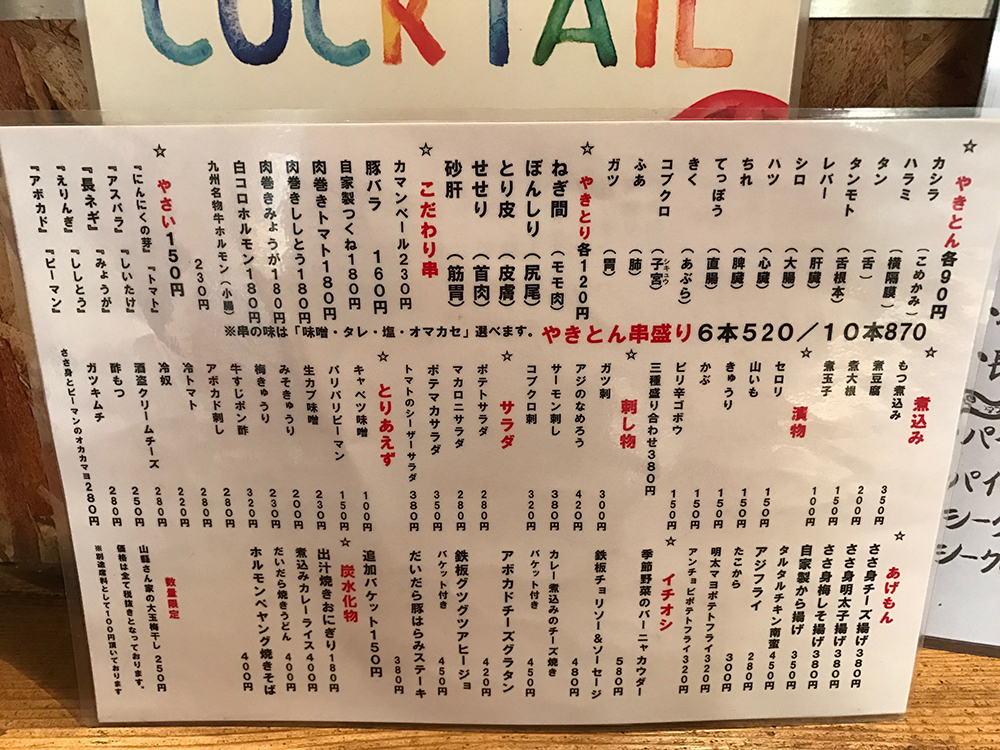 COCKTAIL
☆ やきとん各90円
カシラ（こめかみ）
ハラミ（横隔膜）
タン（舌）
タンモト（舌根本）
レバー（肝臓）
シロ（大腸）
ハツ（心臓）
ちれ（脾臓）
てっぽう（直腸）
きく（あぶら）
コブクロ（子宮）
シキュウ
ふあ（肺）
ガツ（胃）
☆ やきとり各120円
ねぎ間（モモ肉）
ぼんしり（尻尾）
とり皮（皮膚）
せせり（首肉）
砂肝（筋胃）
☆ こだわり串
カマンベール230円
豚バラ 160円
自家製つくね180円
肉巻きトマト180円
肉巻きししとう180円
肉巻きみょうが180円
白コロホルモン180円
九州名物牛ホルモン（小腸）
230円
☆ やさい150円
『にんにくの芽』『トマト』
『アスパラ』『しいたけ』
『長ネギ』『みょうが』
『えりんぎ』『ししとう』
『アボカド』『ピーマン』
※串の味は「味噌・タレ・塩・オマカセ」選べます。やきとん串盛り6本520／10本870
☆ 煮込み
もつ煮込み 350円
煮豆腐 200円
煮大根 150円
煮玉子 100円
☆ 漬物
セロリ 150円
山いも 150円
きゅうり 150円
かぶ 150円
ピリ辛ゴボウ 150円
三種盛り合わせ380円
☆ 刺し物
ガツ刺 300円
アジのなめろう 420円
サーモン刺し 380円
コブクロ刺 320円
☆ サラダ
ポテトサラダ 280円
マカロニサラダ 280円
ポテマカサラダ 350円
トマトのシーザーサラダ 380円
☆ とりあえず
キャベツ味噌 100円
バリバリピーマン 150円
生カブ味噌 230円
みそきゅうり 200円
梅きゅうり 230円
牛すじポン酢 320円
アボカド刺し 280円
冷トマト 280円
冷奴 220円
酒盗クリームチーズ 250円
酢もつ 280円
ガツキムチ 280円
ささ身とピーマンのオカカマヨ280円
☆ あげもん
ささ身チーズ揚げ380円
ささ身明太子揚げ380円
ささ身梅しそ揚げ380円
自家製から揚げ 350円
タルタルチキン南蛮 450円
アジフライ 280円
たこから 300円
明太マヨポテトフライ320円
アンチョビポテトフライ320円
☆ イチオシ
季節野菜のバーニャカウダー
580円
鉄板チョリソー＆ソーセージ
480円
カレー煮込みのチーズ焼き
バケット付き 450円
アボカドチーズグラタン
420円
鉄板グツグツアヒージョ
バケット付き 450円
だいだら豚はらみステーキ
380円
追加バケット150円
☆ 炭水化物
出汁焼きおにぎり180円
煮込みカレーライス400円
だいだら焼きうどん 400円
ホルモンペヤング焼きそば
400円
数量限定
山縣さん家の大玉梅干し 250円
価格は全て税抜きとなっております。
※別途席料として100円頂いております
パ
パイ
シー
シーク